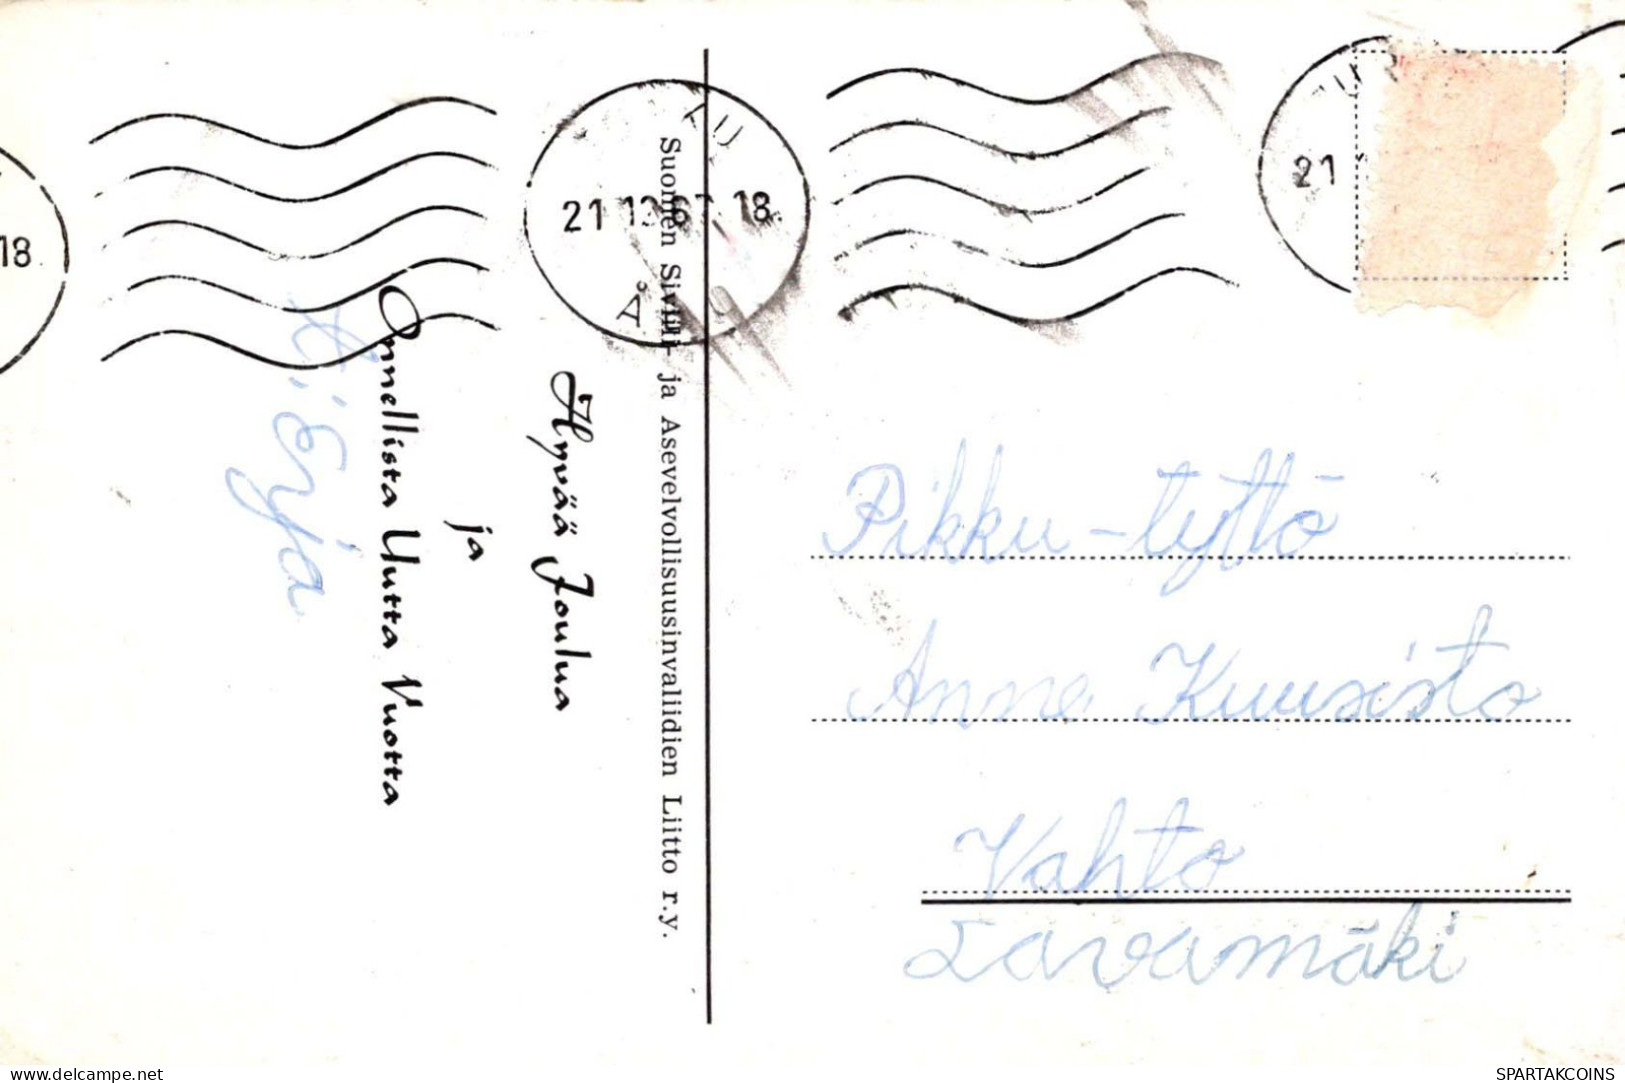 Hyvää Joulua
ja
Onnellista Uutta Vuotta
t: Erja
Suomen Siviili- ja Asevelvollisuusinvaliidien Liitto r.y.
21 12 67 18
Å
18
21
Pikku-tyttö
Anne Kuusisto
Vahto
Lavamäki
www.delcampe.net
SPARTAKCOINS